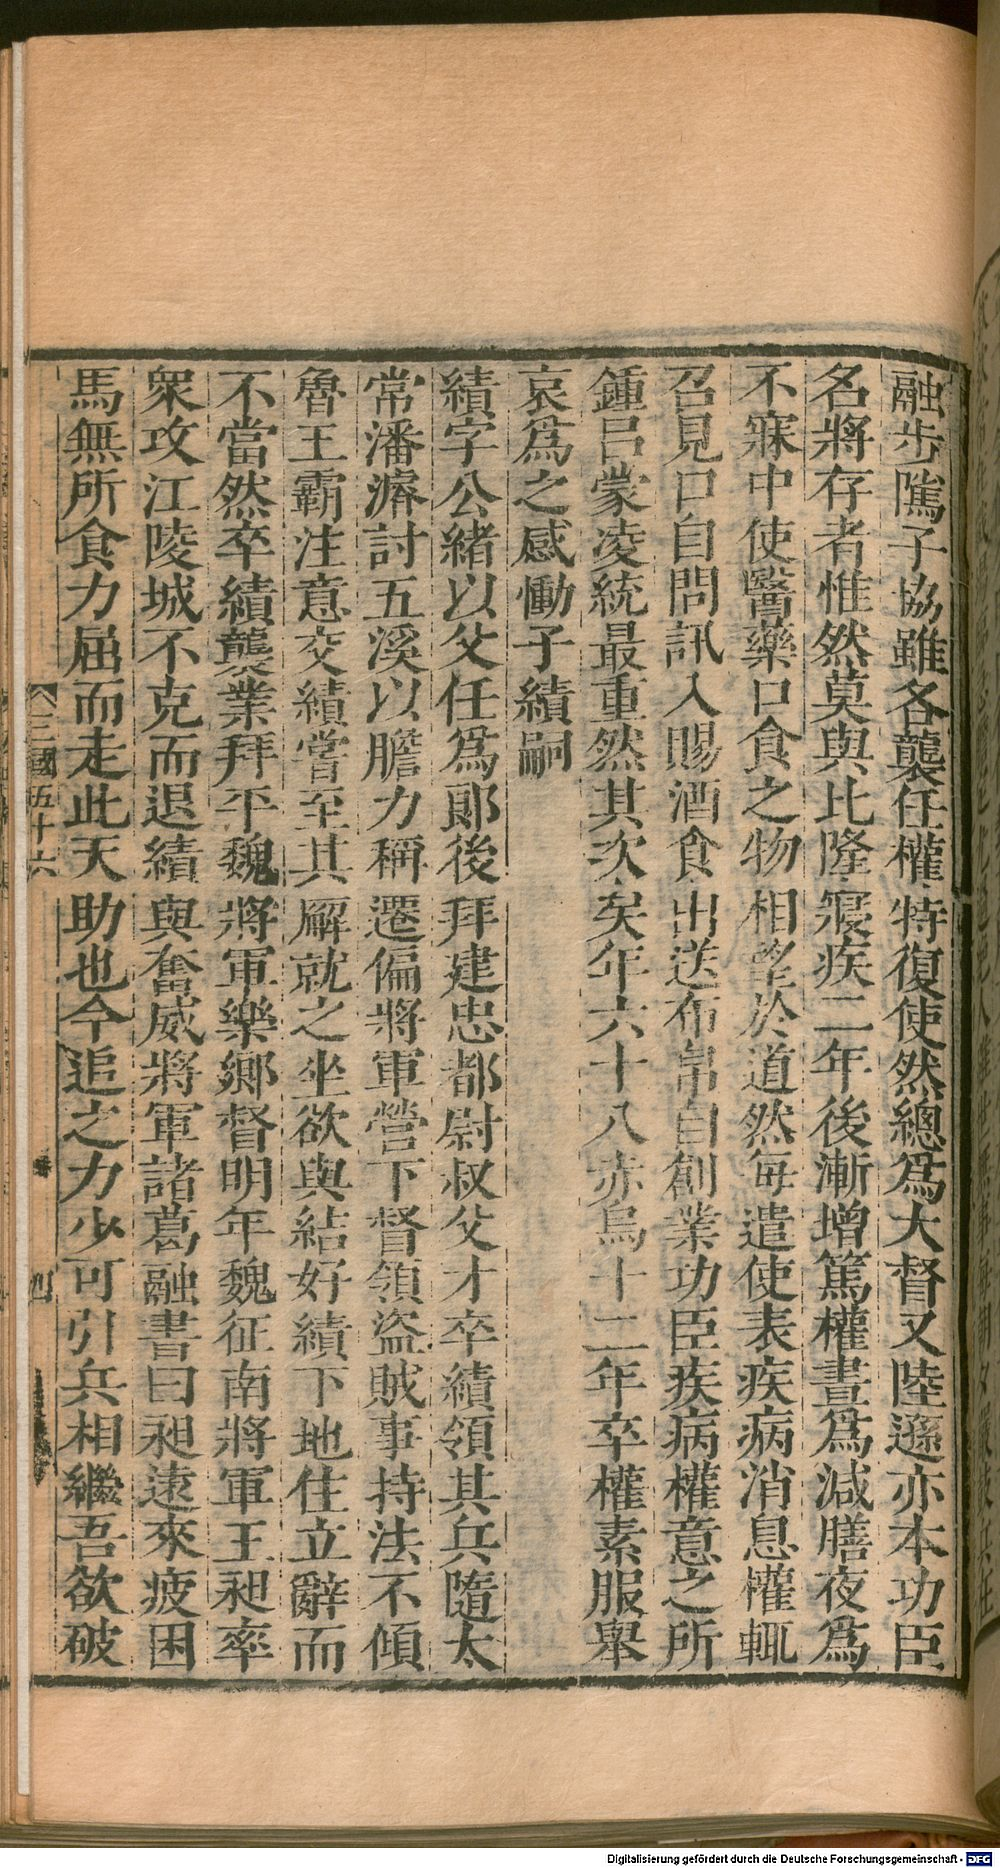 融步隲子協雖各襲任權特復使然總爲大督又陸遜亦本功臣
名將存者惟然莫與比隆寢疾二年後漸增篤權晝爲減膳夜爲
不寐中使醫藥口食之物相望於道然每遣使表疾病消息權輒
召見口自問訊入賜酒食出送布帛自創業功臣疾病權意之所
鍾呂蒙凌統最重然其次矣年六十八赤烏十二年卒權素服舉
哀爲之感慟子績嗣
績字公緒以父任爲郞後拜建忠都尉叔父才卒績領其兵隨太
常潘濬討五溪以膽力稱遷偏將軍營下督領盜賊事持法不傾
魯王霸注意交績嘗至其廨就之坐欲與結好績下地住立辭而
不當然卒績襲業拜平魏將軍樂鄉督明年魏征南將軍王昶率
衆攻江陵城不克而退績與奮威將軍諸葛融書曰昶遠來疲困
馬無所食力屈而走此天助也今追之力少可引兵相繼吾欲破
三國五十六
四
Digitalisierung gefördert durch die Deutsche Forschungsgemeinschaft - DFG